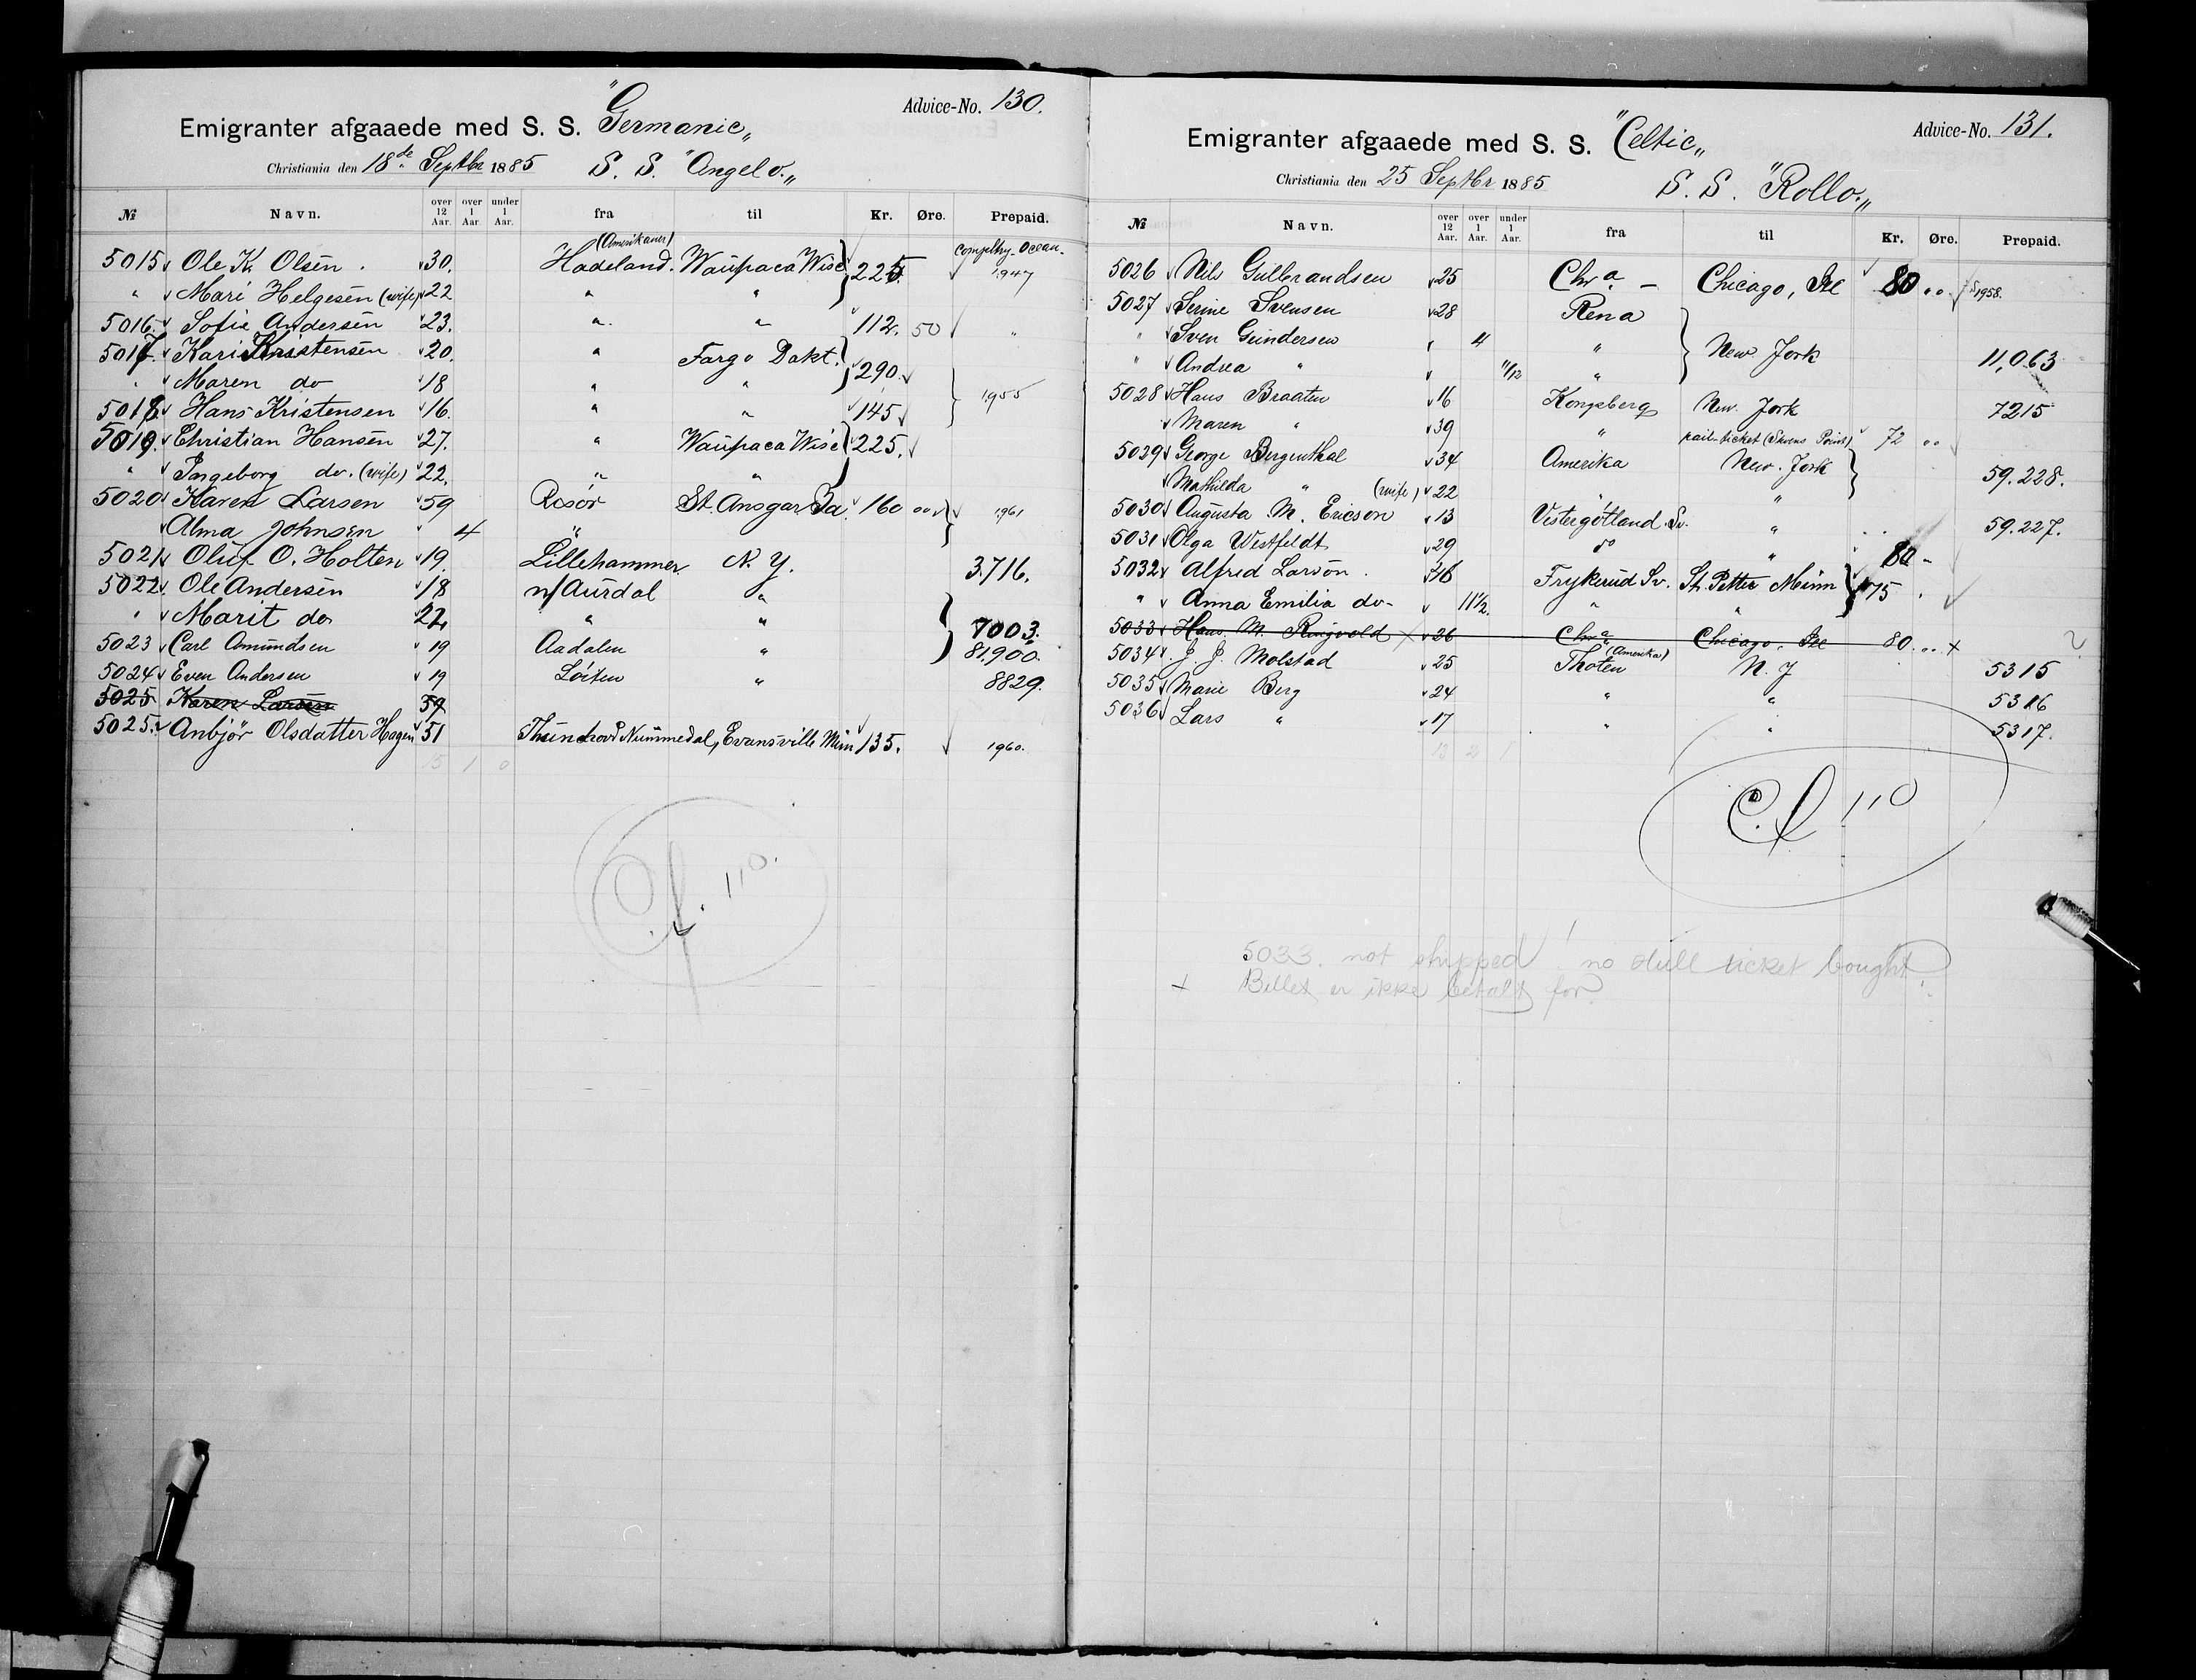 Advice-No. 130.
Emigranter afgaaede med S. S. "Germanic„
Christiania den 18de Septbr 1885 S. S. "Angelo.„
№ Navn. over 12 Aar. over 1 Aar. under 1 Aar. fra til Kr. Øre. Prepaid.
5015 Ole K. Olsen. 30. (Amerikaner) Hadeland. Waupaca Wisc } 225. 1947
" Mari Helgesen (wife) 22 " "
5016. Sofie Andersen 23. " " 112. 50 "
5017 Kari Kristensen 20. " Fargo Dakt. } 290.
" Maren do 18 " " } 1955
5018 Hans Kristensen 16. " " 145
5019. Christian Hansen 27. " Waupaca Wisc } 225.
" Ingeborg do. (wife) 22. " "
5020 Karen Larsen 59 Risør St. Ansgar Ia. 160 " } 1961
Alma Johnsen 4 "
5021 Oluf O. Holten 19. Lillehammer N. Y. 3716.
5022 Ole Andersen 18 n/Aurdal "
" Marit do 22, " " } 7003.
5023 Carl Amundsen 19 Aadalen " 81,900.
5024 Even Andersen 19 Løiten " 8829.
5025 Karen Larsen 59
5025. Anbjør Olsdatter Hagen 51 Nummedal, Evansville Min 135. 1960.
15 1 0
Cf. 110.
Advice-No. 131.
Emigranter afgaaede med S. S. "Celtic„
Christiania den 25 Septbr 1885 S. S. "Rollo.„
№ Navn. over 12 Aar. over 1 Aar. under 1 Aar. fra til Kr. Øre. Prepaid.
5026 Nils Gulbrandsen 25 Chra. – Chicago, Ill 80 " 1958.
5027 Serine Svensen 28 Rena
" Sven Gundersen 4 " } New. York 11,063
" Andrea " 11/12 "
5028 Hans Braaten 16 Kongsberg New. York 7215
Maren " 39 " rail-ticket (Stevens Point) 72 "
5029 George Bergenthal 34 Amerika New. York } 59.228.
Mathilda " (wife) 22 "
5030 Augusta M. Ericson 13 Vistergötland Sv. " 59.227.
5031 Olga Westfeldt 29 do " 80 -
5032 Alfred Larson. 16 Frykerud Sv. St. Petter Minn } 175
" Anna Emilia do- 11½. " "
5033 Hans M. Ringvold 26 Chra Chicago, Ill 80 " +
5034 J. J. Molstad 25 (Amerika) Thoten N. Y 5315
5035 Marie Berg 24 " " 5316
5036 Lars " 17 " " 5317.
13 2 1
Cf 110
5033. not shipped! no dull ticket bought.
+ Billet er ikke betalt for